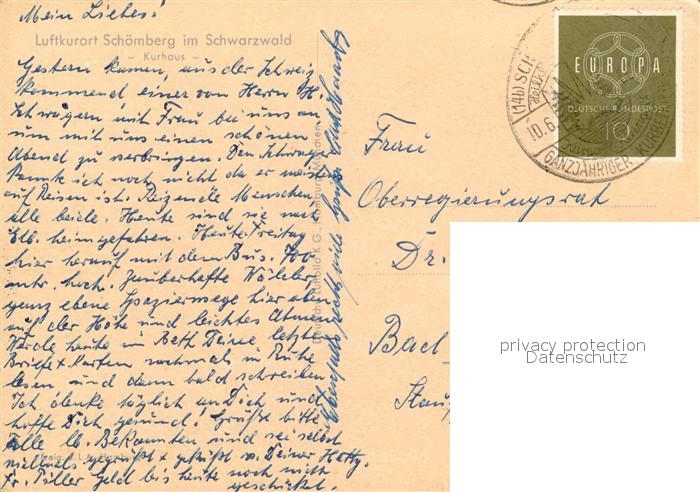 Mein Liebes!
Luftkurort Schömberg im Schwarzwald
– Kurhaus –
Gestern kamen, aus der Schweiz
kommend einer von Herrn H's
Schwägern mit Frau bei uns an
um mit uns einen schönen
Abend zu verbringen. Den Schwager
kannte ich noch nicht da er meist
auf Reisen ist. Reizende Menschen
alle beide. Heute sind sie nach
Elb. heimgefahren. Heute Freitag
hier herauf mit dem Bus. 700
mtr. hoch. Zauberhafte Wälder
ganz ebene Spazierwege hier oben
auf der Höhe und leichtes Atmen
Werde heute im Bett Deine letzten
Briefe + Karten nochmals in Ruhe
lesen und dann bald schreiben
Ich denke täglich an Dich und
hoffe Dich gesund! Grüße bitte
alle lb. Bekannten und sei selbst
vielmals gegrüßt + geküßt v. Deiner Hetty.
Fr. Piller Geld bis heute noch nicht
geschickt.
Ebenfalls recht viele Grüße
(14b) SCH
10.6.
GANZJÄHRIGER KURORT
EUROPA
DEUTSCHE BUNDESPOST
10
Frau
Oberregierungsrat
Dr.
Bad
privacy protection
Datenschutz